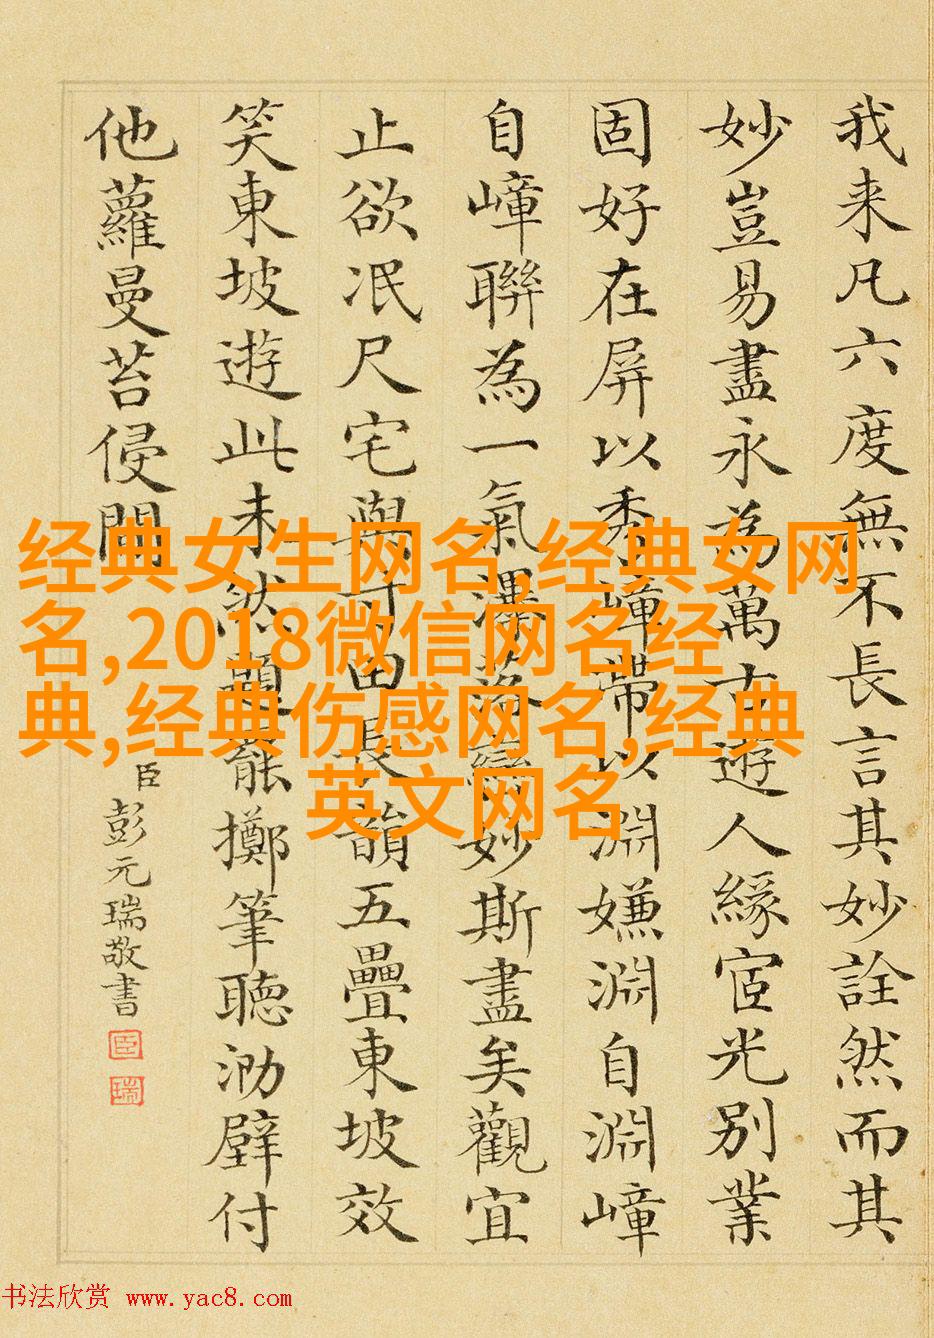 我来凡六度無不長言其妙詮然而其
妙豈易盡永為萬古遊人緣宦光別業
固好在屏以秀嶂帶以淵嫌淵自淵嶂
自嶂聯為一氣瀑落繞妙斯盡矣觀宜
止欲泯尺宅與寸田長韻五疊東坡效
笑東坡遊此未然題罷擲筆聽泐壁付
他蘿蔓苔侵間
臣彭元瑞敬書
臣
瑞
经典女生网名,经典女网
名,2018微信网名经
典,经典伤感网名,经典
英文网名
书法欣赏 www.yac8.com